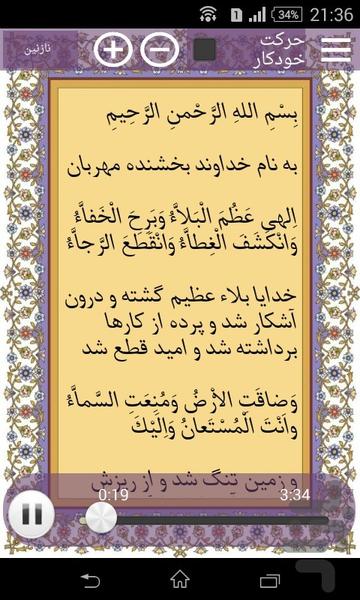 34% 21:36
حرکت
خودکار
نازنین
بِسْمِ اللهِ الرَّحْمنِ الرَّحِیمِ
به نام خداوند بخشنده مهربان
اِلهى عَظُمَ الْبَلاَّءُ وَبَرِحَ الْخَفاَّءُ
وَانْکَشَفَ الْغِطاَّءُ وَانْقَطَعَ الرَّجاَّءُ
خدایا بلاء عظیم گشته و درون
آشکار شد و پرده از کارها
برداشته شد و امید قطع شد
وَضاقَتِ الاْرْضُ وَمُنِعَتِ السَّماَّءُ
واَنْتَ الْمُسْتَعانُ وَاِلَیْكَ
و زمین تنگ شد و از ریزش
0:19 3:34